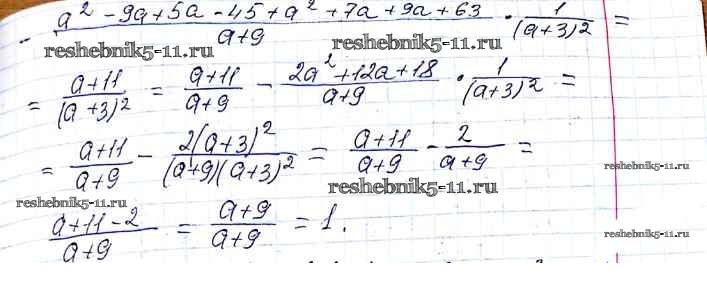 - (a² - 9a + 5a - 45 + a² + 7a + 9a + 63)/(a+9) · 1/(a+3)² =
reshebnik5-11.ru
reshebnik5-11.ru
= (a+11)/(a+3)² = (a+11)/(a+9) - (2a² + 12a + 18)/(a+9) · 1/(a+3)² =
= (a+11)/(a+9) - 2(a+3)²/((a+9)(a+3)²) = (a+11)/(a+9) - 2/(a+9) =
reshebnik5-11.ru
reshebnik5-11.ru
reshebnik5-11.ru
(a+11-2)/(a+9) = (a+9)/(a+9) = 1.
reshebnik5-11.ru